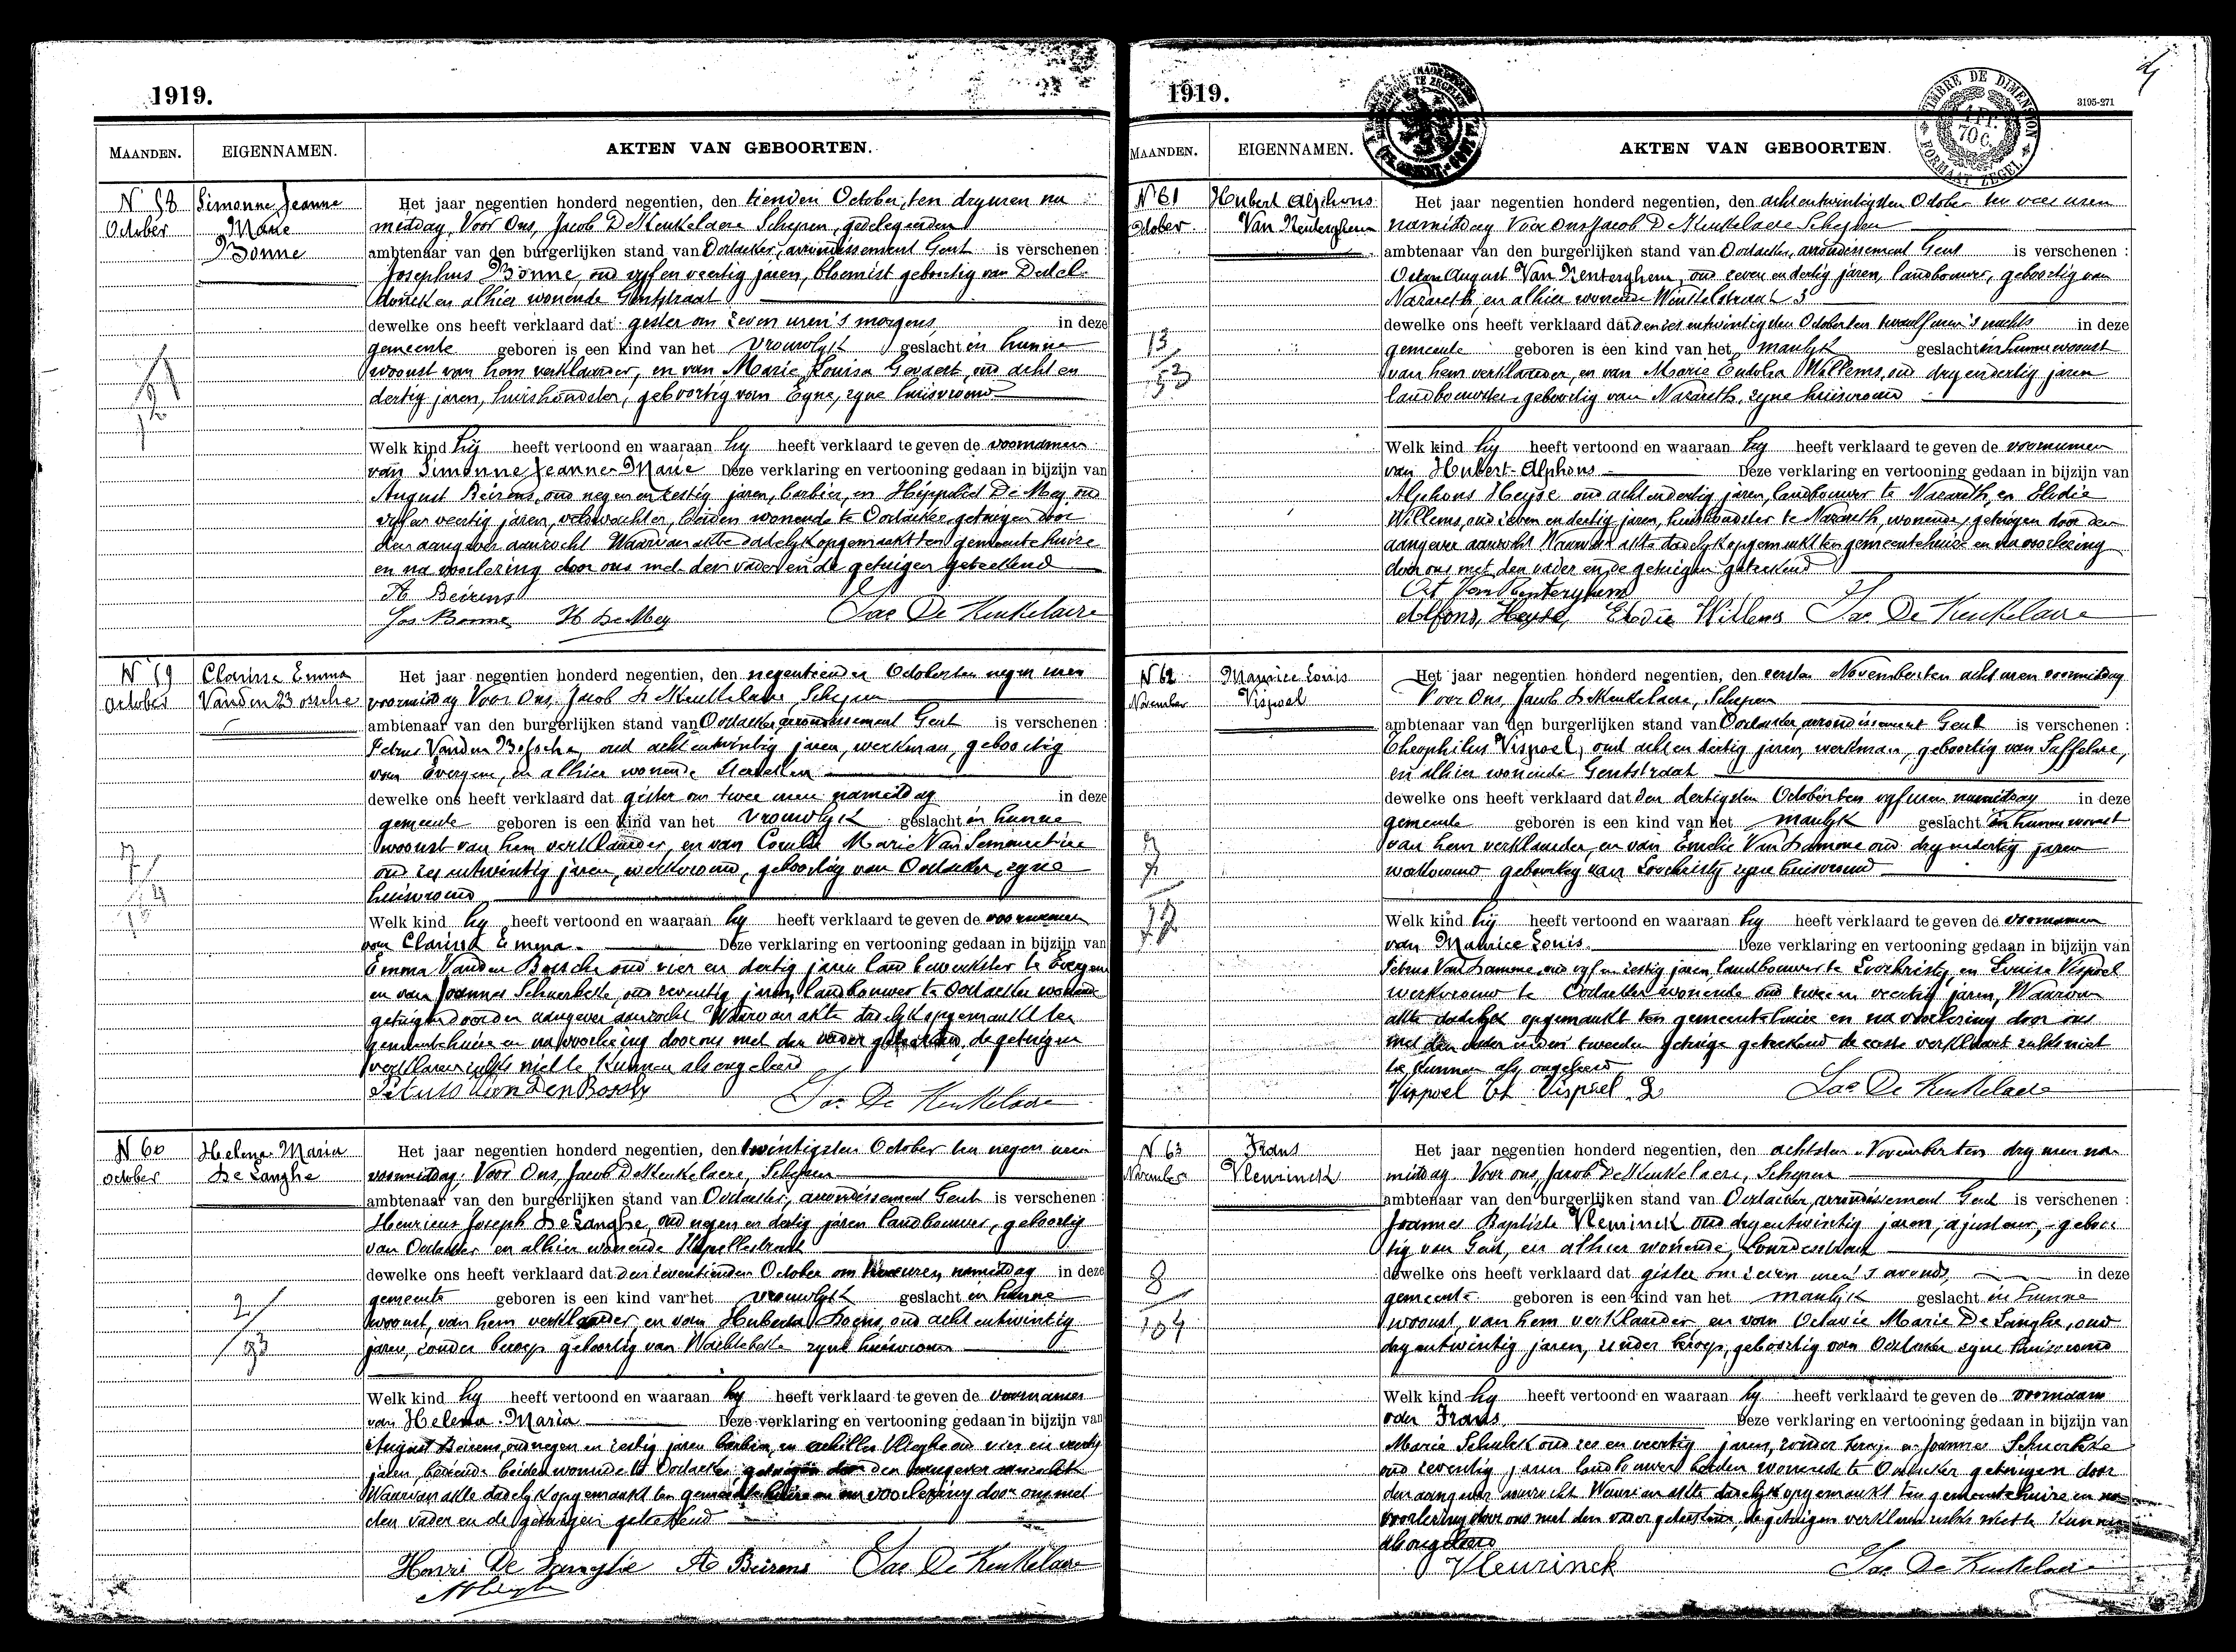 1919.
MAANDEN. EIGENNAMEN. AKTEN VAN GEBOORTEN.
N 58 Simonne Jeanne
October Marie
Bonne
Het jaar negentien honderd negentien, den tienden October, ten dry uren na
middag, Voor Ons, Jacob De Keukelaere Schepen, gedelegeerden
ambtenaar van den burgerlijken stand van Oostacker, arrondissement Gent is verschenen :
Josephus Bonne, oud vyf en veertig jaren, bloemist geboortig van Destel
donck en alhier wonende Gentstraat
dewelke ons heeft verklaard dat gister om zeven uren 's morgens in deze
gemeente geboren is een kind van het vrouwlyk geslacht in hunne
woonst van hem verklaarder, en van Marie Louisa Gevaert, oud acht en
dertig jaren, huishoudster, geboortig van Eyne, zyne huisvrouw
Welk kind hij heeft vertoond en waaraan hy heeft verklaard te geven de voornamen
van Simonne Jeanne Marie Deze verklaring en vertooning gedaan in bijzijn van
August Beirens, oud negen en zestig jaren, barbier, en Hippoliet De Mey oud
vyf en veertig jaren, veldwachter, beiden wonende te Oostacker getuigen door
den aangever aanzocht Waarvan akte dadelyk opgemaakt ten gemeentehuize
en na voorlezing door ons met den vader en de getuigen geteekend
A Beirens
Jos. Bonne H. De Mey Jac De Keukelaere
N 59 Clarisse Emma
October Vanden Bossche
Het jaar negentien honderd negentien, den negentienden October ten negen uren
voormiddag Voor Ons, Jacob De Keukelaere, Schepen
ambtenaar van den burgerlijken stand van Oostacker, arrondissement Gent is verschenen :
Petrus Vanden Bossche, oud acht entwintig jaren, werkman, geboortig
van Evergem, en alhier wonende
dewelke ons heeft verklaard dat gister om twee uren namiddag in deze
gemeente geboren is een kind van het vrouwlyk geslacht in hunne
woonst van hem verklaarder, en van Marie Van
oud zes entwintig jaren, werkvrouw, geboortig van Oostacker, zyne
huisvrouw
Welk kind hy heeft vertoond en waaraan hy heeft verklaard te geven de voornamen
van Clarisse Emma. Deze verklaring en vertooning gedaan in bijzijn van
Emma Vanden Bossche oud vier en dertig jaren landbewerkster te Evergem
en van Joannes Schuerbeke, oud zeventig jaren, landbouwer te Oostacker wonende
getuigen door den aangever aanzocht Waarvan akte dadelyk opgemaakt ten
gemeentehuize en na voorlezing door ons met den vader geteekend, de getuigen
verklaren zulks niet te kunnen als ongeleerd
Petrus Van Den Bossche
Jac De Keukelaere
N 60 Helena Maria
October De Langhe
Het jaar negentien honderd negentien, den twintigsten October ten negen uren
voormiddag. Voor Ons, Jacob De Keukelaere, Schepen
ambtenaar van den burgerlijken stand van Oostacker, arrondissement Gent is verschenen :
Henricus Joseph De Langhe, oud negen en dertig jaren landbouwer, geboortig
van Oostacker en alhier wonende Kapellestraat
dewelke ons heeft verklaard dat den zeventienden October om uren namiddag in deze
gemeente geboren is een kind van het vrouwlyk geslacht in hunne
woonst, van hem verklaarder, en van Huberta oud acht entwintig
jaren, zonder beroep geboortig van Wachtebeke zyne huisvrouw
2/93
Welk kind hy heeft vertoond en waaraan hy heeft verklaard te geven de voornamen
van Helena Maria Deze verklaring en vertooning gedaan in bijzijn van
August Beirens, oud negen en zestig jaren barbier, en Achilles oud vier en veertig
jaren, beiden wonende te Oostacker, getuigen door den aangever aanzocht
Waarvan akte dadelyk opgemaakt ten gemeentehuize en na voorlezing door ons met
den vader en de getuigen geteekend
Henri De Langhe A Beirens Jac De Keukelaere
1919.
3195-271
TIMBRE DE DIMENSION
70 C.
FORMAAT ZEGEL
MAANDEN. EIGENNAMEN. AKTEN VAN GEBOORTEN.
N 61 Hubert Alphons
October Van Renterghem
Het jaar negentien honderd negentien, den acht entwintigsten October ten vier uren
namiddag Voor ons Jacob De Keukelaere Schepen
ambtenaar van den burgerlijken stand van Oostacker, arrondissement Gent is verschenen :
August Van Renterghem, oud zeven en dertig jaren, landbouwer, geboortig van
Nazareth, en alhier wonende Winkelstraat 3
dewelke ons heeft verklaard dat den zes entwintigsten October ten twaalf uren 's nachts in deze
gemeente geboren is een kind van het manlyk geslacht in hunne woonst
van hem verklaarder, en van Marie Willems, oud dry endertig jaren
landbouwster, geboortig van Nazareth, zyne huisvrouw
Welk kind hij heeft vertoond en waaraan hy heeft verklaard te geven de voornamen
van Hubert-Alphons Deze verklaring en vertooning gedaan in bijzijn van
Alphons Heyse oud acht endertig jaren, landbouwer te Nazareth, en Elodie
Willems, oud zeven en dertig jaren, huishoudster te Nazareth, wonende, getuigen door den
aangever aanzocht Waarvan akte dadelyk opgemaakt ten gemeentehuize en na voorlezing
door ons met den vader en de getuigen geteekend
Van Renterghem
Alfons, Heyse, Elodie Willems Jac De Keukelaere
N 62 Maurice Louis
November Vispoel
Het jaar negentien honderd negentien, den eersten November ten acht uren voormiddag
Voor Ons, Jacob De Keukelaere, Schepen
ambtenaar van den burgerlijken stand van Oostacker, arrondissement Gent is verschenen :
Theophilus Vispoel, oud acht en dertig jaren, werkman, geboortig van Saffelare,
en alhier wonende Gentstraat
dewelke ons heeft verklaard dat den dertigsten October ten vyf uren namiddag in deze
gemeente geboren is een kind van het manlyk geslacht in hunne woonst
van hem verklaarder, en van Emelie Van Damme oud dry endertig jaren
werkvrouw geboortig van Loochristy zyne huisvrouw
Welk kind hij heeft vertoond en waaraan hy heeft verklaard te geven de voornamen
van Maurice Louis. Deze verklaring en vertooning gedaan in bijzijn van
Petrus Van Damme, oud vyf en zestig jaren, landbouwer te Loochristy, en Louise Vispoel
werkvrouw te Oostacker wonende oud twee en veertig jaren, Waarvan
akte dadelyk opgemaakt ten gemeentehuize en na voorlezing door ons
met den vader en den tweeden getuige geteekend de eerste verklaart zulks niet
te kunnen als ongeleerd
Vispoel Th Vispoel L Jac De Keukelaere
N 63 Frans
November Vleurinck
Het jaar negentien honderd negentien, den achtsten November ten dry uren na
middag. Voor ons, Jacob De Keukelaere, Schepen
ambtenaar van den burgerlijken stand van Oostacker, arrondissement Gent is verschenen :
Joannes Baptiste Vleurinck oud dry entwintig jaren, ajusteur, geboor
tig van Gent, en alhier wonende, Lourdesstraat
dewelke ons heeft verklaard dat gister om zeven uren 's avonds, in deze
gemeente geboren is een kind van het manlijk geslacht in hunne
woonst, van hem verklaarder, en van Octavie Marie De Langhe, oud
dry entwintig jaren, zonder beroep, geboortig van Oostacker zyne huisvrouw
8/104
Welk kind hy heeft vertoond en waaraan hy heeft verklaard te geven de voornaam
van Frans Deze verklaring en vertooning gedaan in bijzijn van
Marie oud zes en veertig jaren, zonder beroep en Joannes Schuerbeke
oud zeventig jaren landbouwer beiden wonende te Oostacker getuigen door
den aangever aanzocht Waarvan akte dadelyk opgemaakt ten gemeentehuize en na
voorlezing door ons met den vader geteekend, de getuigen verklaren zulks niet te kunnen
als ongeleerd
Vleurinck Jac De Keukelaere